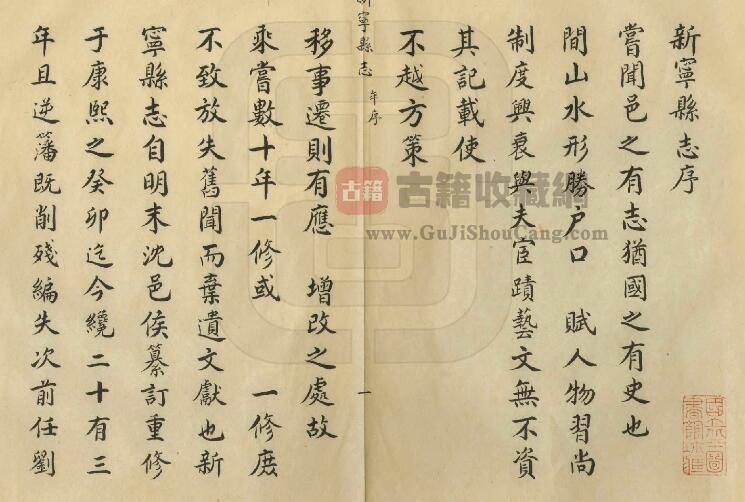 新寧縣志序
嘗聞邑之有志猶國之有史也
間山水形勝戶口 賦人物習尚
制度興衰與夫宦蹟藝文無不資
其記載使
不越方策
新寧縣志 年序 一
移事遷則有應 增改之處故
乘嘗數十年一修或 一修庶
不致放失舊聞而棄遺文獻也新
寧縣志自明末沈邑侯纂訂重修
于康熙之癸卯迄今纔二十有三
年且逆藩既削殘編失次前任劉
古籍
古籍收藏網
www.GuJiShouCang.com